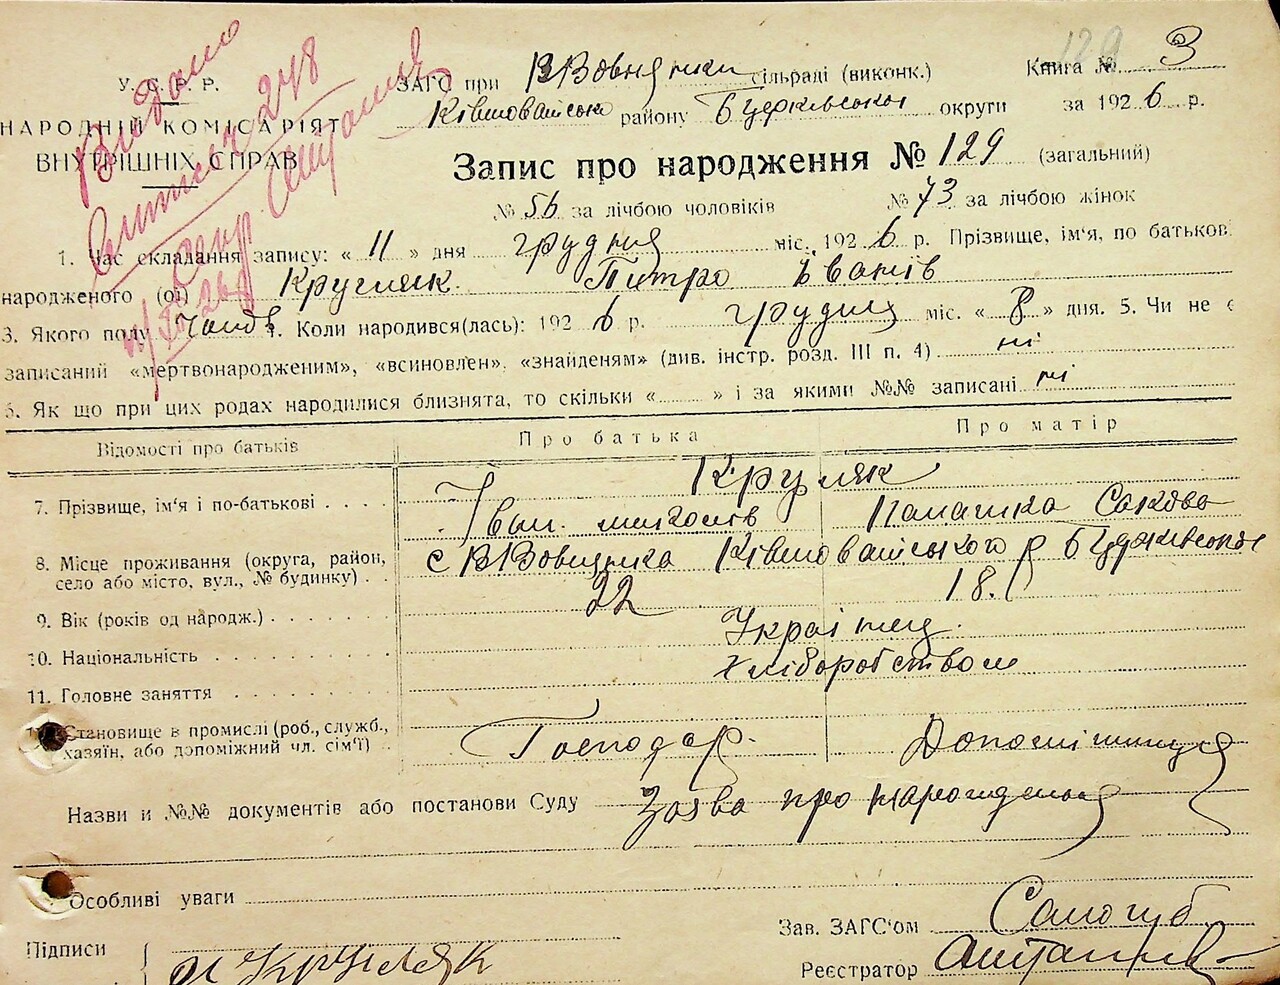 Видано
витяг 248
У. С. Р. Р.
НАРОДНІЙ КОМІСАРІЯТ
ВНУТРІШНІХ СПРАВ
129
ЗАГС при В Вовнянки сільраді (виконк.) Книга № 3
району округи за 1926 р.
Запис про народження № 129 (загальний)
№ 56 за лічбою чоловіків № 73 за лічбою жінок
1. Час складання запису: « 11 » дня грудня міс. 1926 р. Прізвище, ім'я, по батьков.
народженого (ої) Кругляк Петро Іванів
3. Якого полу 4. Коли народився(лась): 1926 р. грудня міс. « 8 » дня. 5. Чи не є
записаний «мертвонародженим», «всиновлен», «знайденям» (див. інстр. розд. III п. 4) ні
6. Як що при цих родах народилися близнята, то скільки « » і за якими №№ записані ні
Відомості про батьків Про батька Про матір
Кругляк
7. Прізвище, ім'я і по-батькові Іван Палажка Сакова
8. Місце проживання (округа, район, с В Вовнянка р
село або місто, вул., № будинку)
9. Вік (років од народж.) 22 18.
10. Національність Українец.
11. Головне заняття Хліборобством
12. Становище в промислі (роб., служб., Господар.
хазяїн, або допоміжний чл. сім'ї)
Назви и №№ документів або постанови Суду Заява про народження
Особливі уваги
Зав. ЗАГС'ом Самогуб
Підписи И Кругляк
Реєстратор